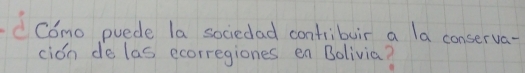 ¿Cómo puede la sociedad contribuir a la conserva-
ción de las ecorregiones en Bolivia?